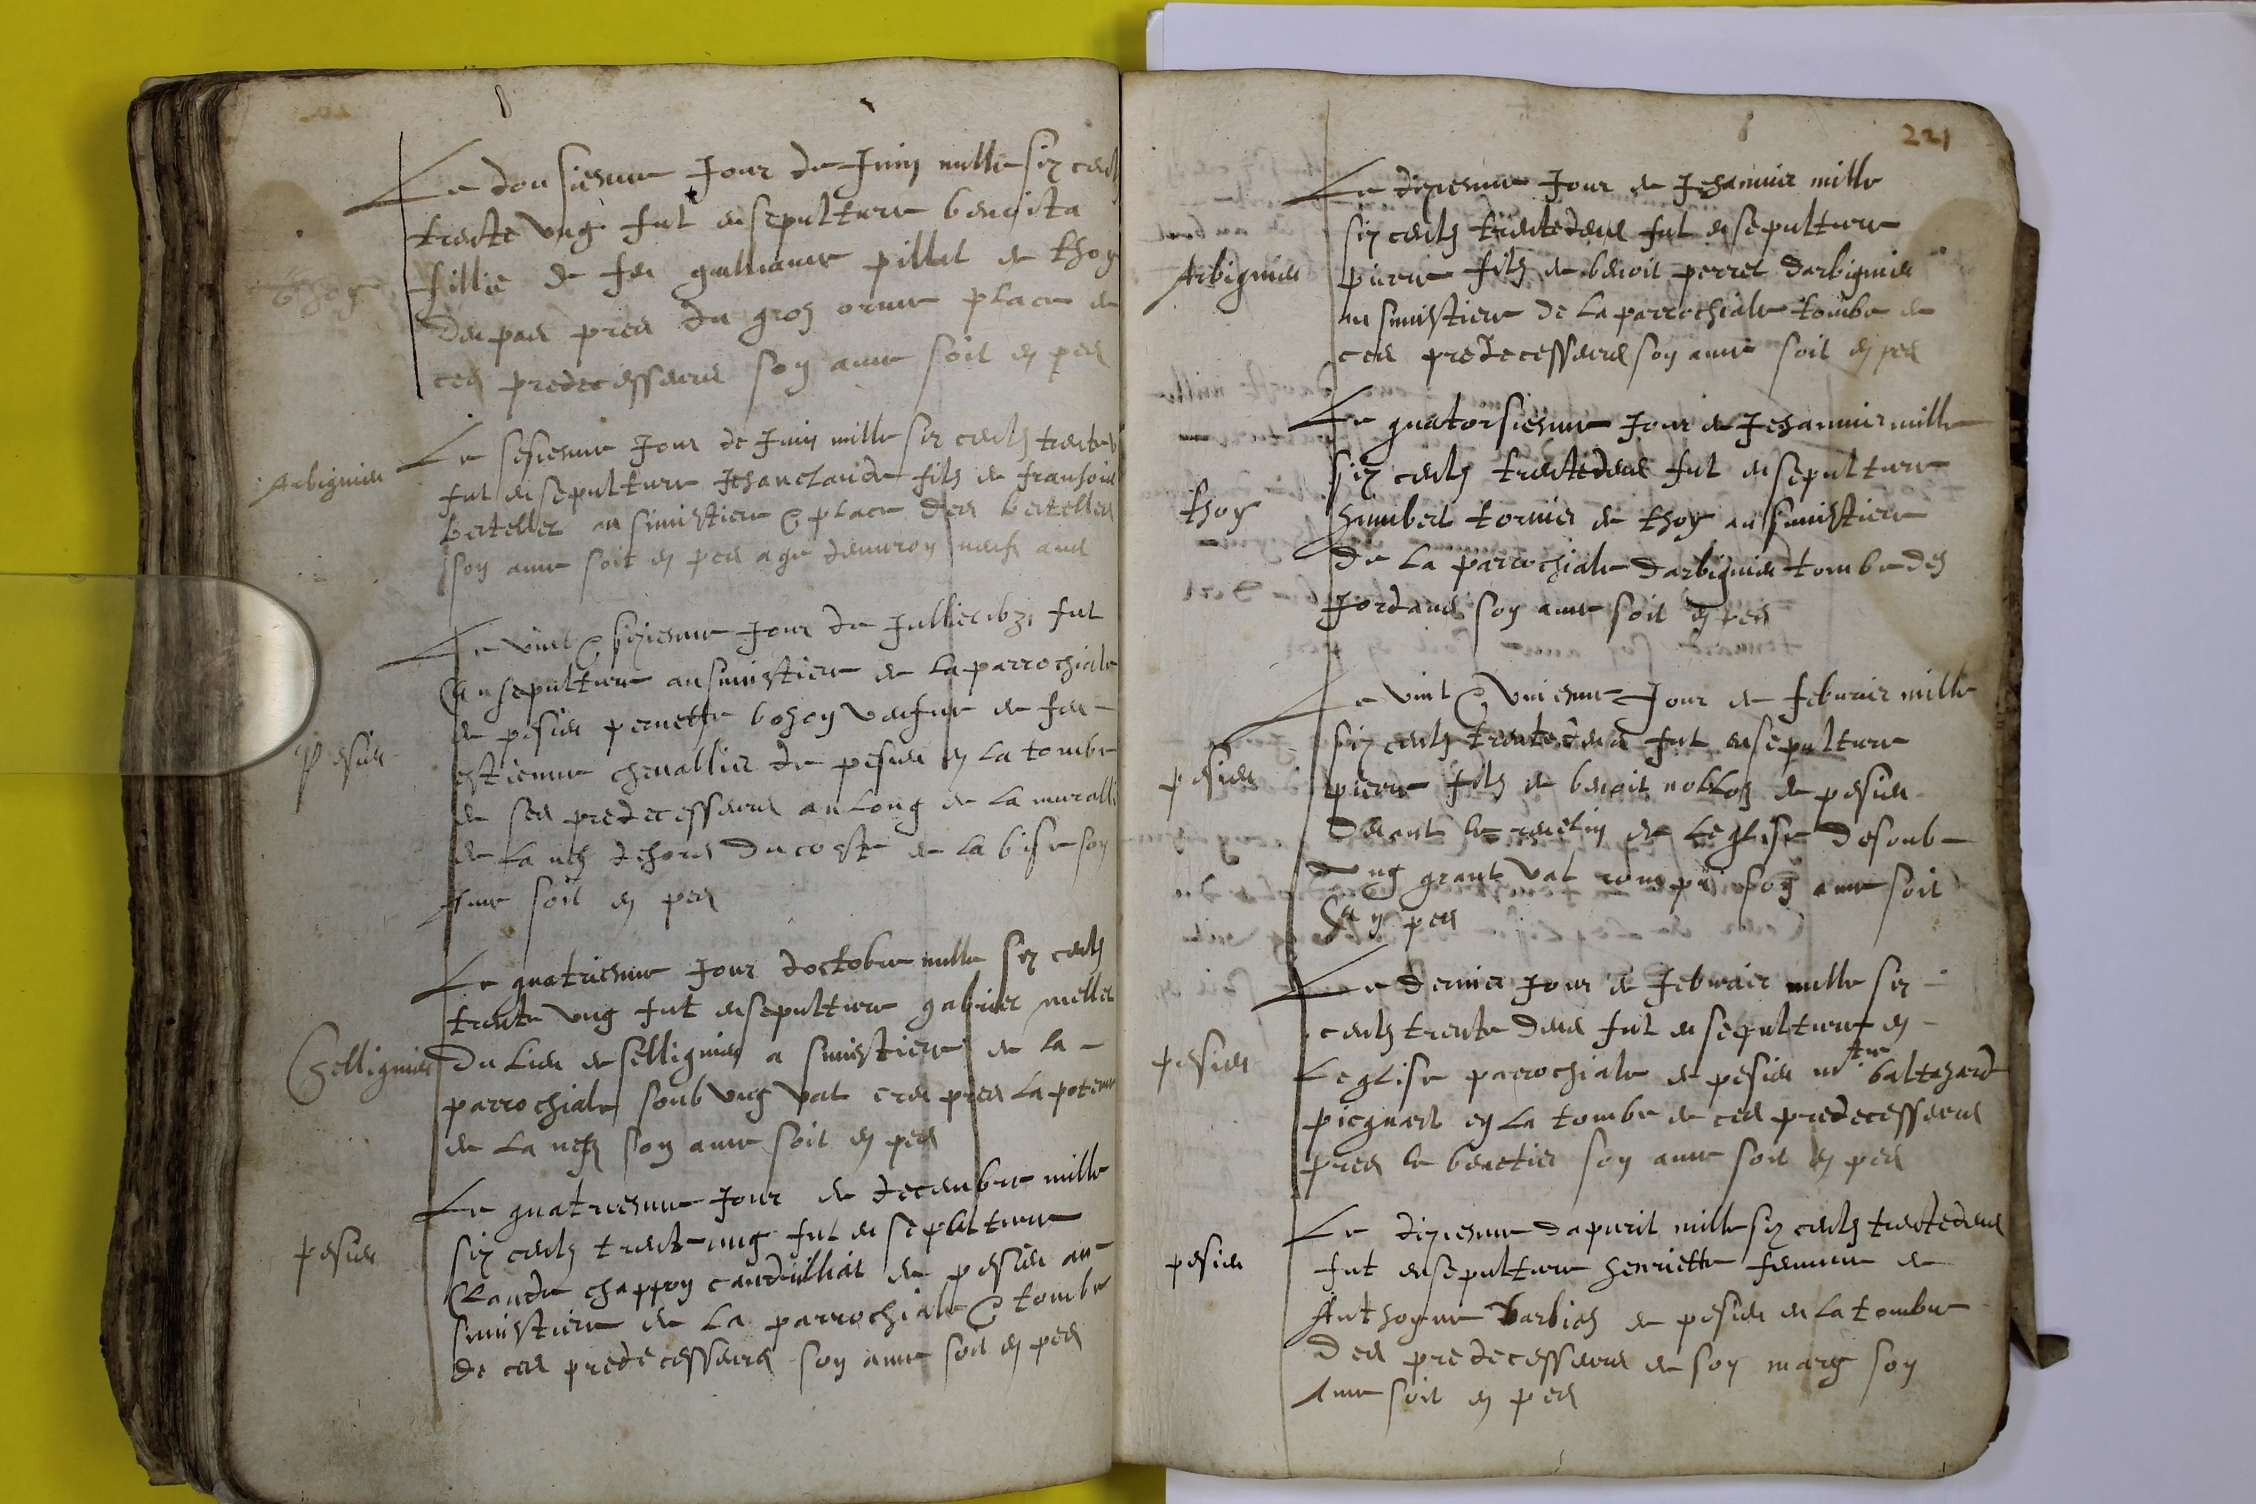 Thoy
Le dousiesme Jour de Juing mille six centz
trente ung fut ensepulture benoita
fillie de feu guilliaume pillot de thoy
despas pres du groz orme place de
ces predecesseurs soy ame soit en pes
Arbignieu
Le sesiesme Jour de Juing mille six centz trente
fut ensepulture Jehanclaude filz de fransois
berteller au simistiere & place des bertellers
soy ame soit en pes age denviroy neufz ans
pesieu
Le vint & sixiesme Jour de Jullier fut
Ensepulture au simistiere de la parrochiale
de pesieu pernette bohoy veefue de feu
estienne chevallier de pesieu en la tombe
de ses predecesseurs au long de la muralli
de la nefz dehors du coste de la bise soy
Ame soit en pes
Sellignieu
Le quatriesme Jour doctobre mille six centz
trente ung fut ensepulture gabriel meller
du lieu de sellignieu a simistiere de la
parrochiale soub ung vat pres la poteme
de la nefz soy ame soit en pes
pesieu
Le quatriesme Jour de decembre mille
six centz trente ung fut ensepulture
Claude chappoy caudulliat de pesieu au
simistiere de la parrochiale & tombe
de ces predecesseurs soy ame soit en pes
221
Arbignieu
Le diziesme Jour de Jehanvier mille
six centz trentedeus fut ensepulture
pierre filz de benoit perret darbignieu
au simistiere de la parrochiale tombe de
ces predecesseurs soy ame soit en pes
thoy
Le quatorsiesme Jour de Jehanvier mille
six centz trentedeus fut ensepulture
humbert tornier de thoy au simistiere
de la parrochiale darbignieu tombe des
Jordans soy ame soit en pes
pesieu
Le vint & uniesme Jour de febvrier mille
six centz trentedeus fut ensepulture
pierre filz de benoit nobloz de pesieu
devant le de leglise desoub
ung grant vat rompu soy ame soit
En pes
pesieu
Le dernier Jour de febvrier mille six
centz trente deus fut ensepulture en
leglise parrochiale de pesieu mtre baltezard
picquart en la tombe de ces predecesseurs
pres le benetier soy ame soit en pes
pesieu
Le diziesme dapvril mille six centz trentedeus
fut ensepulture henriette femme de
Anthoyne barbiez de pesieu en la tombe
des predecesseurs de soy mary soy
Ame soit en pes